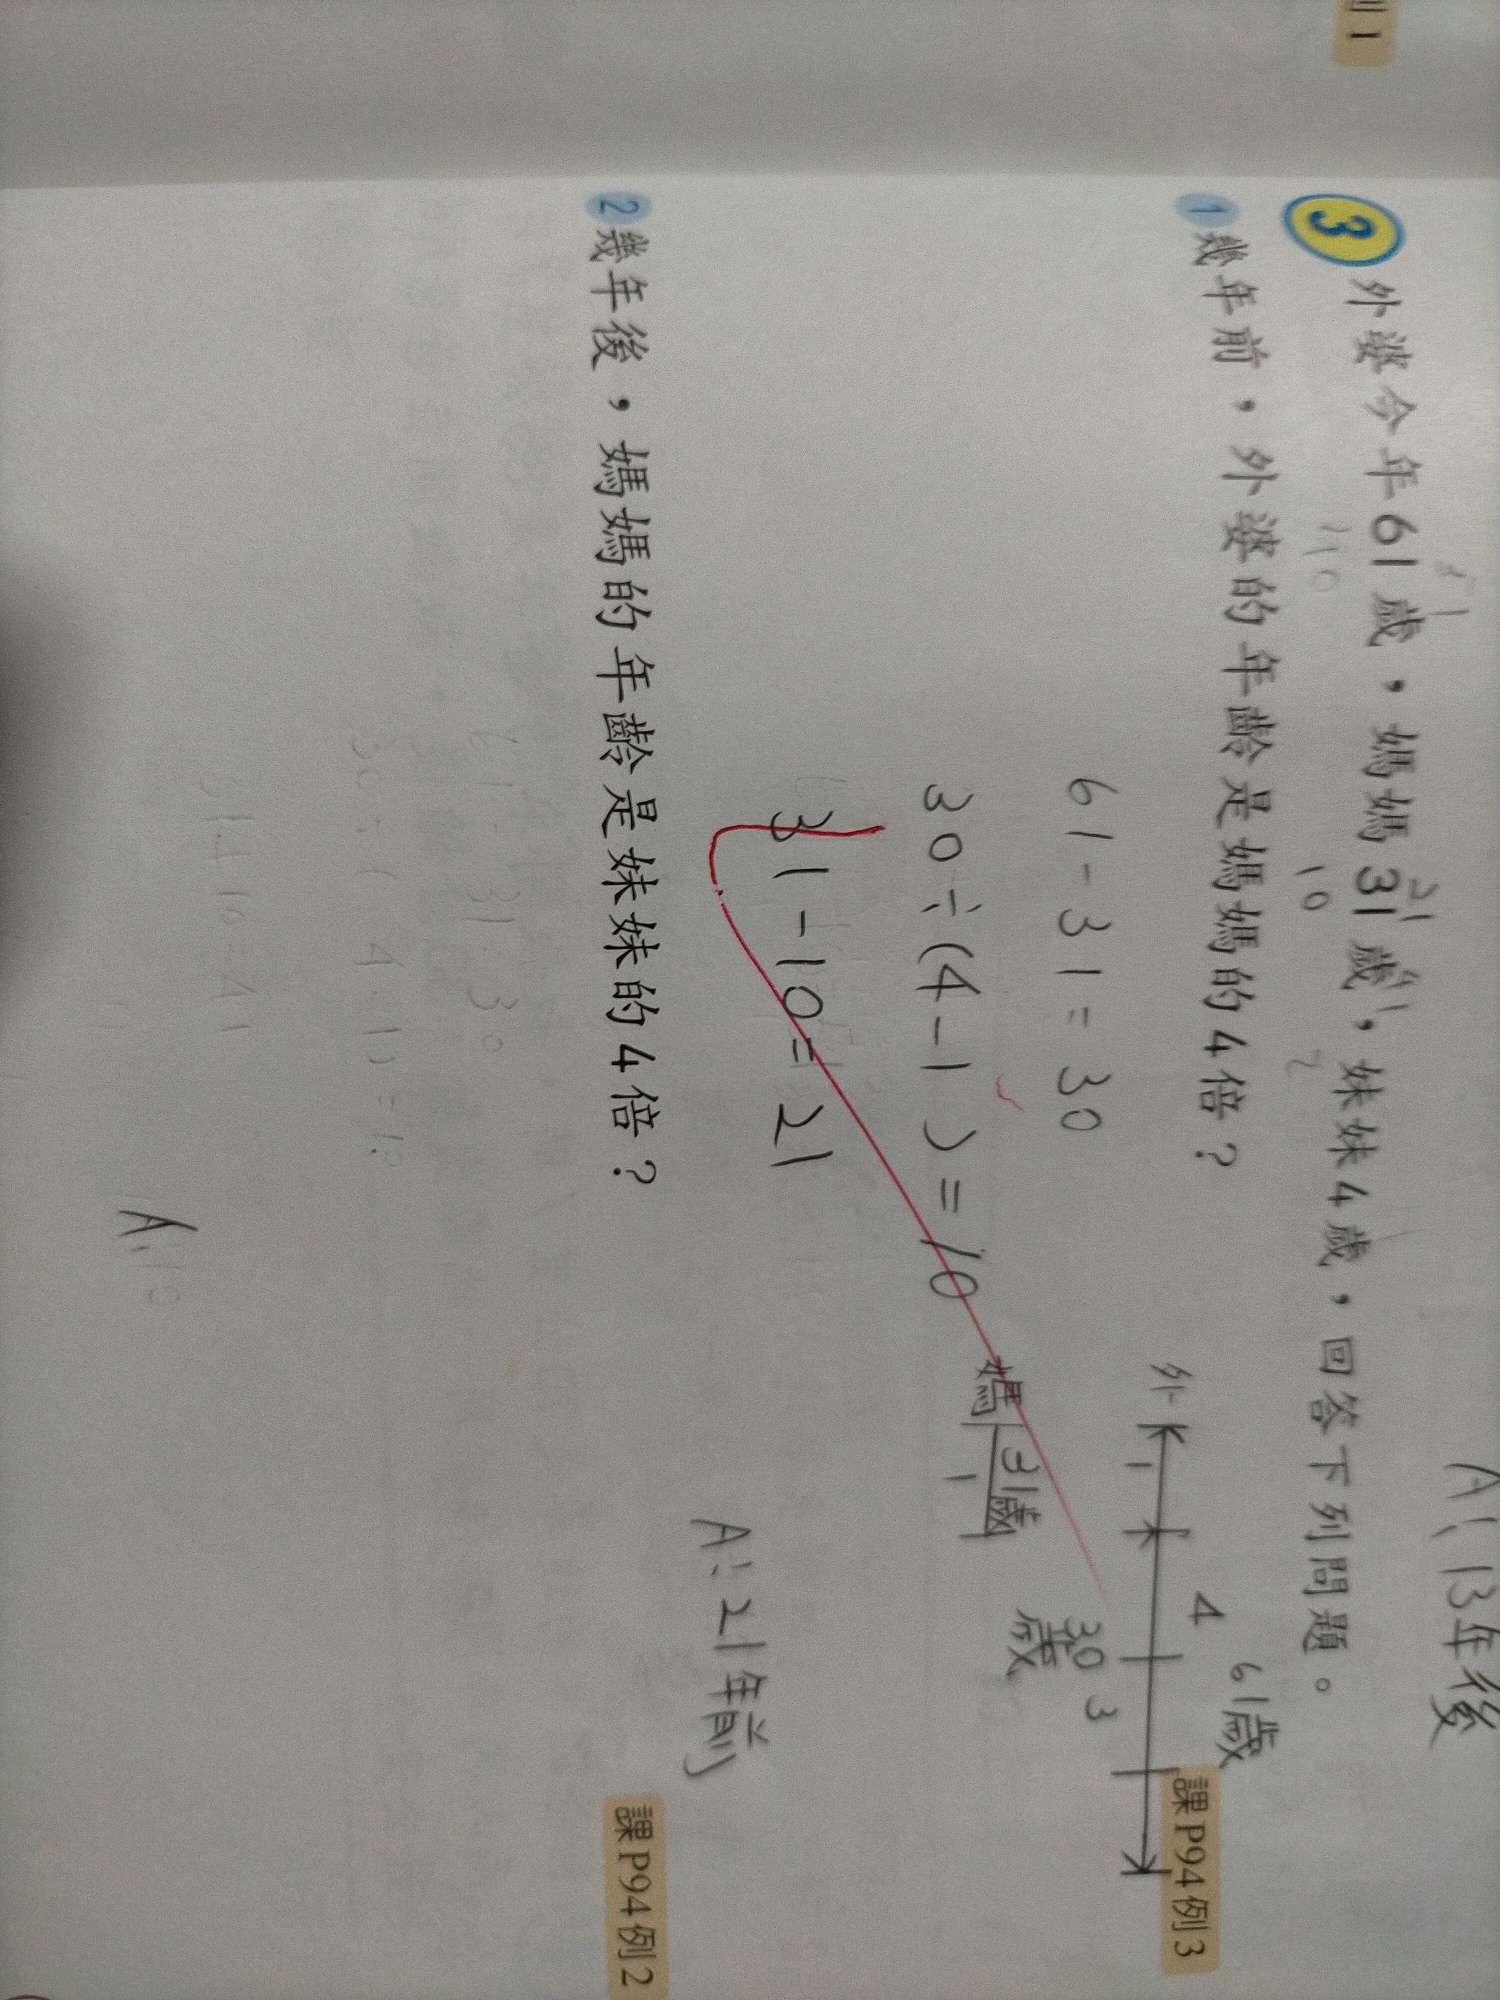 例1
A:13年後
3 外婆今年61歲，媽媽31歲，妹妹4歲，回答下列問題。
21
10
1 幾年前，外婆的年齡是媽媽的4倍？
課P94例3
61歲
4
外
1
61-31=30
30
歲
3
30÷(4-1)=10
媽
31歲
1
31-10=21
A:21年前
2 幾年後，媽媽的年齡是妹妹的4倍？
課P94例2